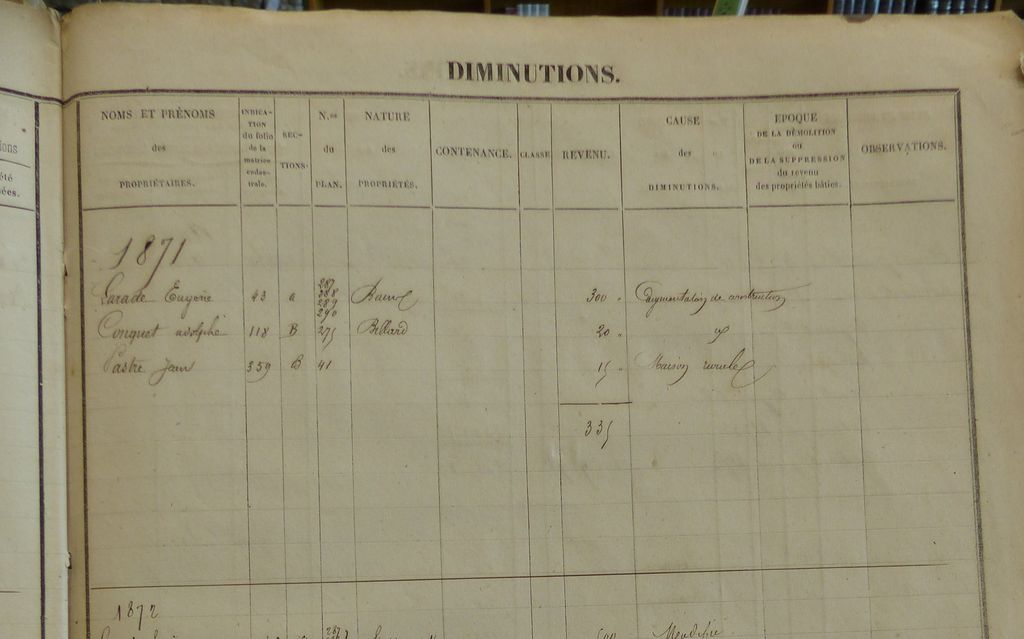 ions
été
ées.
DIMINUTIONS.
NOMS ET PRÉNOMS
des
PROPRIÉTAIRES.
INDICA-
TION
du folio
de la
matrice
cadas-
trale.
SEC-
TIONS.
N.os
du
PLAN.
NATURE
des
PROPRIÉTÉS.
CONTENANCE.
CLASSE
REVENU.
CAUSE
des
DIMINUTIONS.
EPOQUE
DE LA DÉMOLITION
ou
DE LA SUPPRESSION
du revenu
des propriétés bâties.
OBSERVATIONS.
1871
Larade Eugenie 43 a 287 288 289 290 300 " Augmentation de construction
Conquet adolphe 118 B 275 Billard 20 "
Pastre Jean 359 B 41 15 " Maison rurale
335
1872
287